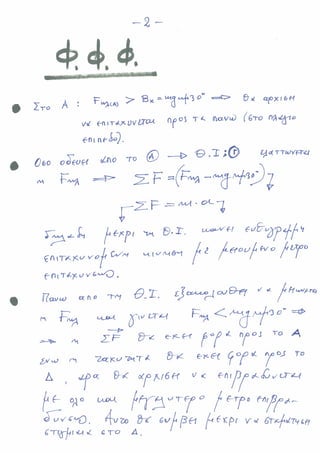 - 2 -
Φ. Φ. Φ.
Στο Α : Fηλ(Α) > Bx = mgημ30° ⇒ θα αρχισει
να επιταχυνεται προς τα πανω (στο πλαγιο
επιπεδο).
Οσο οδευει απο το Α → Θ.Ι : Γ ελαττωνεται
η Fηλ ⇒ ΣF = (Fηλ - mgημ30°)
ΣF = m · α
δηλαδη μεχρι τη Θ.Ι. κανει ευθυγραμμη
επιταχυνομενη κινηση με μειουμενο μετρο
επιταχυνσης.
Πανω απο τη Θ.Ι. εξακολουθει να μειωνεται
η Fηλ και γινεται Fηλ < mgημ30° ⇒
⇒ η ΣF θα εχει φορα προς το Α
ενω η ταχυτητα θα εχει φορα προς το
Δ, αρα θα αρχισει να επιβραδυνεται
με ολο και μεγαλυτερο μετρο επιβρα-
δυνσης. Αυτο θα συμβει μεχρι να σταματησει
στιγμιαια στο Δ.